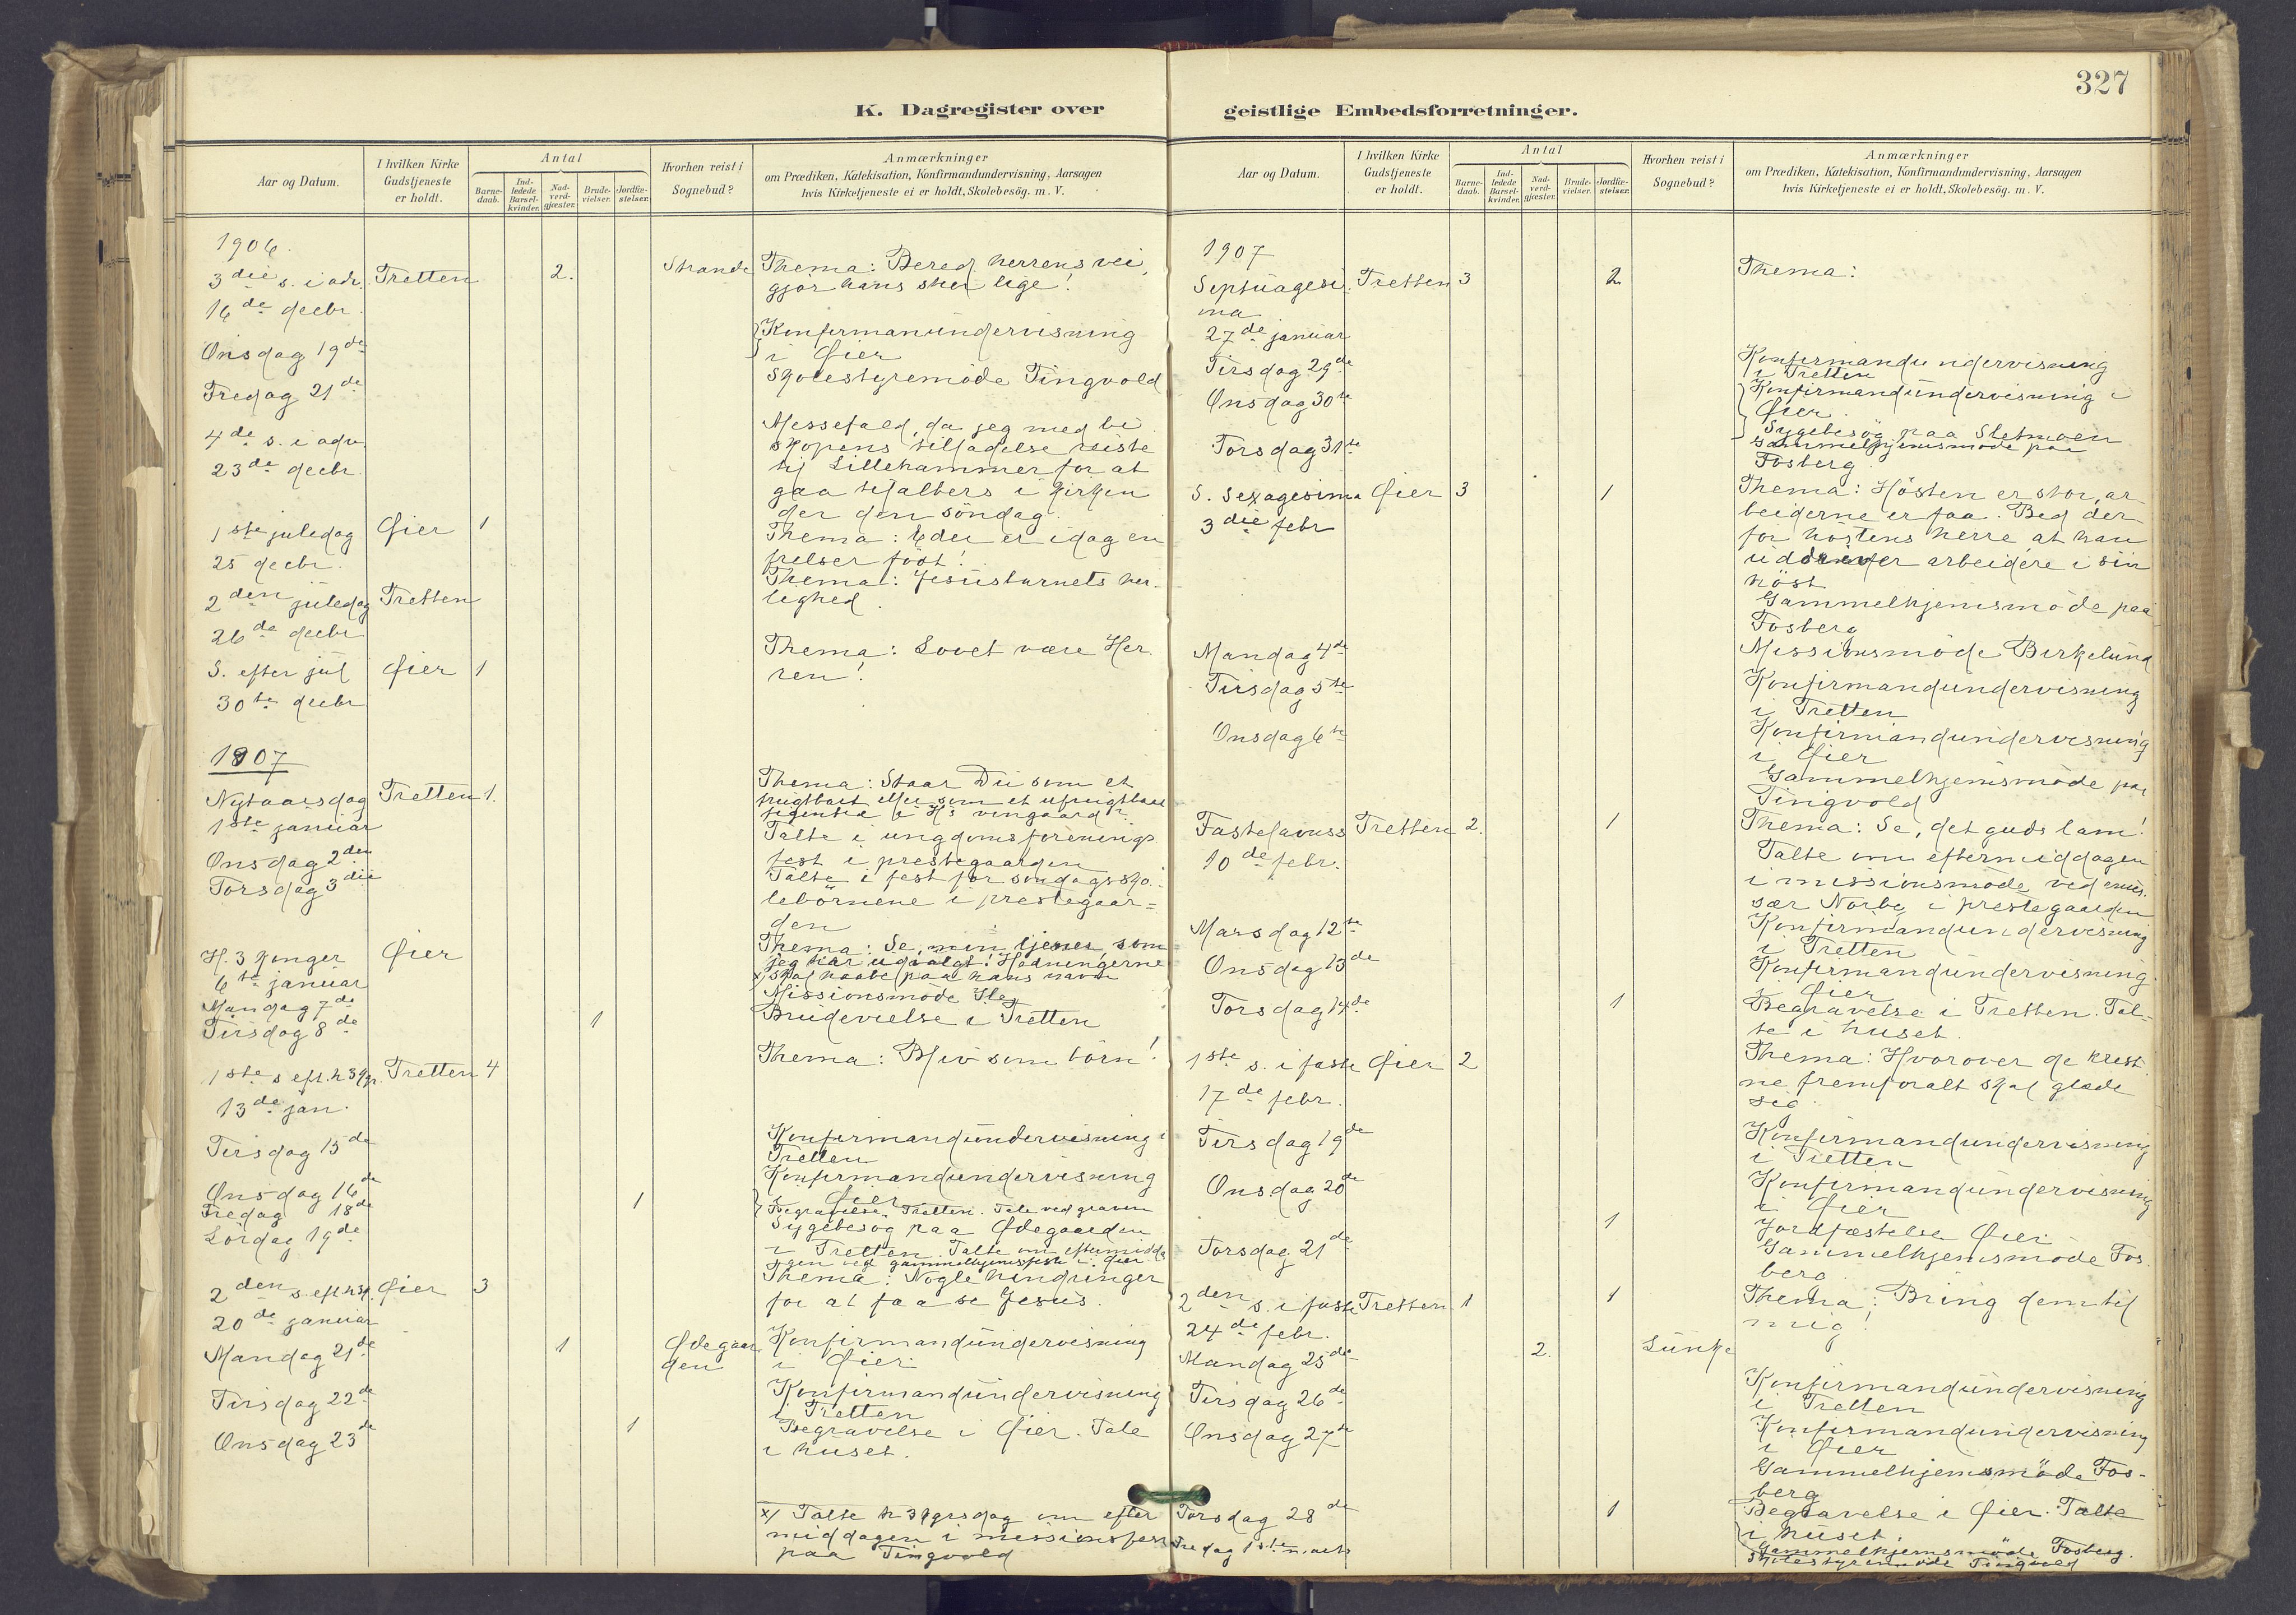 K. Dagregister over
Aar og Datum.
I hvilken Kirke Gudstjeneste er holdt.
Antal
Barne-daab.
Ind-ledede Barsel-kvinder.
Nad-verd-gjæster.
Brude-vielser.
Jordfæ-stelser.
Hvorhen reist i Sognebud?
Anmærkninger
om Prædiken, Katekisation, Konfirmandundervisning, Aarsagen
hvis Kirketjeneste ei er holdt, Skolebesög. m. V.
1906.
3die s. i adv. Tretten 2. Strande Thema: Bered herrens vei,
gjør hans stier lige!
16de decbr.
Onsdag 19de Konfirmanundervisning
i Øier
Fredag 21de Skolestyremöde Tingvold
4de s. i adv. Messefald, da jeg med bi
skopens tilladelse reiste
23de decbr. til Lillehammer for at
gaa til alters i kirken
der den söndag.
1ste juledag Øier 1 Thema: Eder er idag en
frelser född!
25 decbr.
2den juledag Tretten Thema: Jesusbarnets her
lighed.
26de decbr
S. efter jul Øier 1 Thema: Lovet være Her
ren!
30te decbr
1907
Nytaarsdag Tretten 1. Thema: Staar Du som et
frugtbart eller som et ufrugtbart
figentræ i H's vingaard?
1ste januar
Onsdag 2den Talte i ungdomsforenings
fest i prestegaarden
Torsdag 3die Talte i fest for söndagssko-
lebörnene i prestegaar=
den
H. 3 konger Øier Thema: Se, min tjener som
jeg har udvalgt! Hedningerne
x) skal haabe paa hans navn
6te januar
Mandag 7de Missionsmöde
Tirsdag 8de 1 Brudevielse i Tretten
1ste s eft. h3kgr. Tretten 4 Thema: Bliv som börn!
13de jan.
Tirsdag 15de Konfirmandundervisning i
Tretten
Onsdag 16de Konfirmandundervisning
i Øier
Fredag 18de 1 Begravelse. Tretten. Tale ved graven
Lördag 19de Sygebesög paa Ødegaarden
i Tretten. Talte om eftermidda
gen ved gammelhjemsfest i Øier
2den s. eft h3k. Øier 3 Thema: Nogle hindringer
for at faa se Jesus.
20de januar
Mandag 21de 1 Ødegaar
den Konfirmandundervisning
i Øier
Tirsdag 22de Konfirmandundervisning
i Tretten
Onsdag 23de 1 Begravelse i Øier. Tale
i huset.
x/ Talte h 3 kgrsdag om efter
middagen i missionsfest
paa Tingvold
327
geistlige Embedsforretninger.
Aar og Datum.
I hvilken Kirke Gudstjeneste er holdt.
Antal
Barne-daab.
Ind-ledede Barsel-kvinder.
Nad-verd-gjæster.
Brude-vielser.
Jordfæ-stelser.
Hvorhen reist i Sognebud?
Anmærkninger
om Prædiken, Katekisation, Konfirmandundervisning, Aarsagen
hvis Kirketjeneste ei er holdt, Skolebesög. m. V.
1907
Septuagesi Tretten 3 2 Thema:
ma
27de januar
Tirsdag 29de Konfirmandundervisning
i Tretten
Onsdag 30te Konfirmandundervisning i
Øier.
Torsdag 31te Sygebesög paa Sletmoen
Gammelhjemsmöde paa
Fosberg.
S. Sexagesima Øier 3 1 Thema: Hösten er stor, ar
beiderne er faa. Bed der
3die febr for höstens herre at han
uddriver arbeidere i sin
höst
Gammelhjemsmöde paa
Fosberg
Mandag 4de Missionsmöde Birkelund
Tirsdag 5te Konfirmandundervisning
i Tretten
Onsdag 6te Konfirmandundervisning
i Øier
Gammelhjemsmöde paa
Tingvold
Fastelavnss Tretten 2. 1 Thema: Se, det guds lam!
10de febr. Talte om eftermiddagen
i missionsmöde ved emis.
sær Norby i prestegaarden
Marsdag 12te Konfirmandundervisning
i Tretten
Onsdag 13de Konfirmandundervisning
i Øier
Torsdag 14de 1 Begravelse i Tretten. Tal=
te i huset.
1ste s. i faste Øier 2 Thema: Hvorover de krist
ne fremforalt skal glæde
sig.
17de febr.
Tirsdag 19de Konfirmandundervisning
i Tretten
Onsdag 20de Konfirmandundervisning
i Øier
Torsdag 21de 1 Jordfæstelse Øier
Gammelhjemsmöde Fos
berg.
2den s. i faste Tretten 1 1 Thema: Bring dem til
mig!
24de febr.
Mandag 25de 2. Lunke
Tirsdag 26de Konfirmandundervisning
i Tretten
Onsdag 27de Konfirmandundervisning
i Øier
Gammelhjemsmöde Fos-
berg
Torsdag 28de 1 Begravelse i Øier. Talte
i huset.
Gammelhjemsmöde Fosberg.
Fredag 1ste marts Skolestyremöde Tingvold